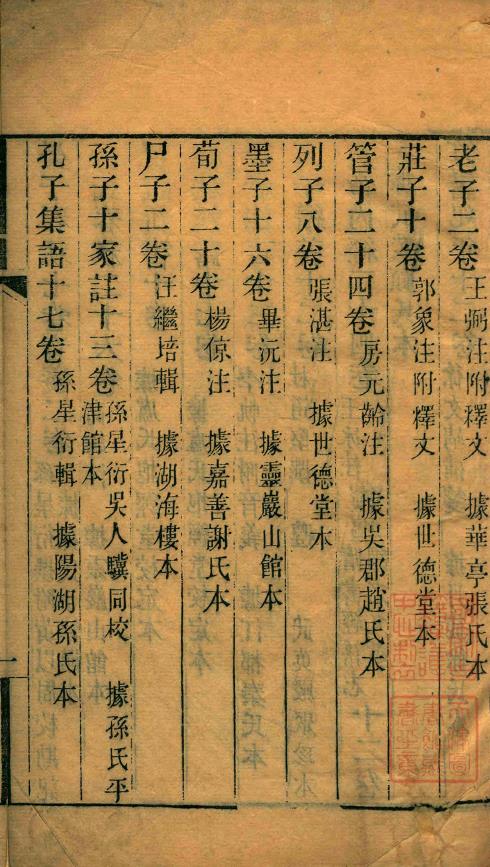 老子二卷 王弼注附釋文 據華亭張氏本
莊子十卷 郭象注附釋文 據世德堂本
管子二十四卷 房元齡注 據吳郡趙氏本
列子八卷 張湛注 據世德堂本
墨子十六卷 畢沅注 據靈巖山館本
荀子二十卷 楊倞注 據嘉善謝氏本
尸子二卷 汪繼培輯 據湖海樓本
孫子十家註十三卷 孫星衍吳人驥同校 據孫氏平
津館本
孔子集語十七卷 孫星衍輯 據陽湖孫氏本
一